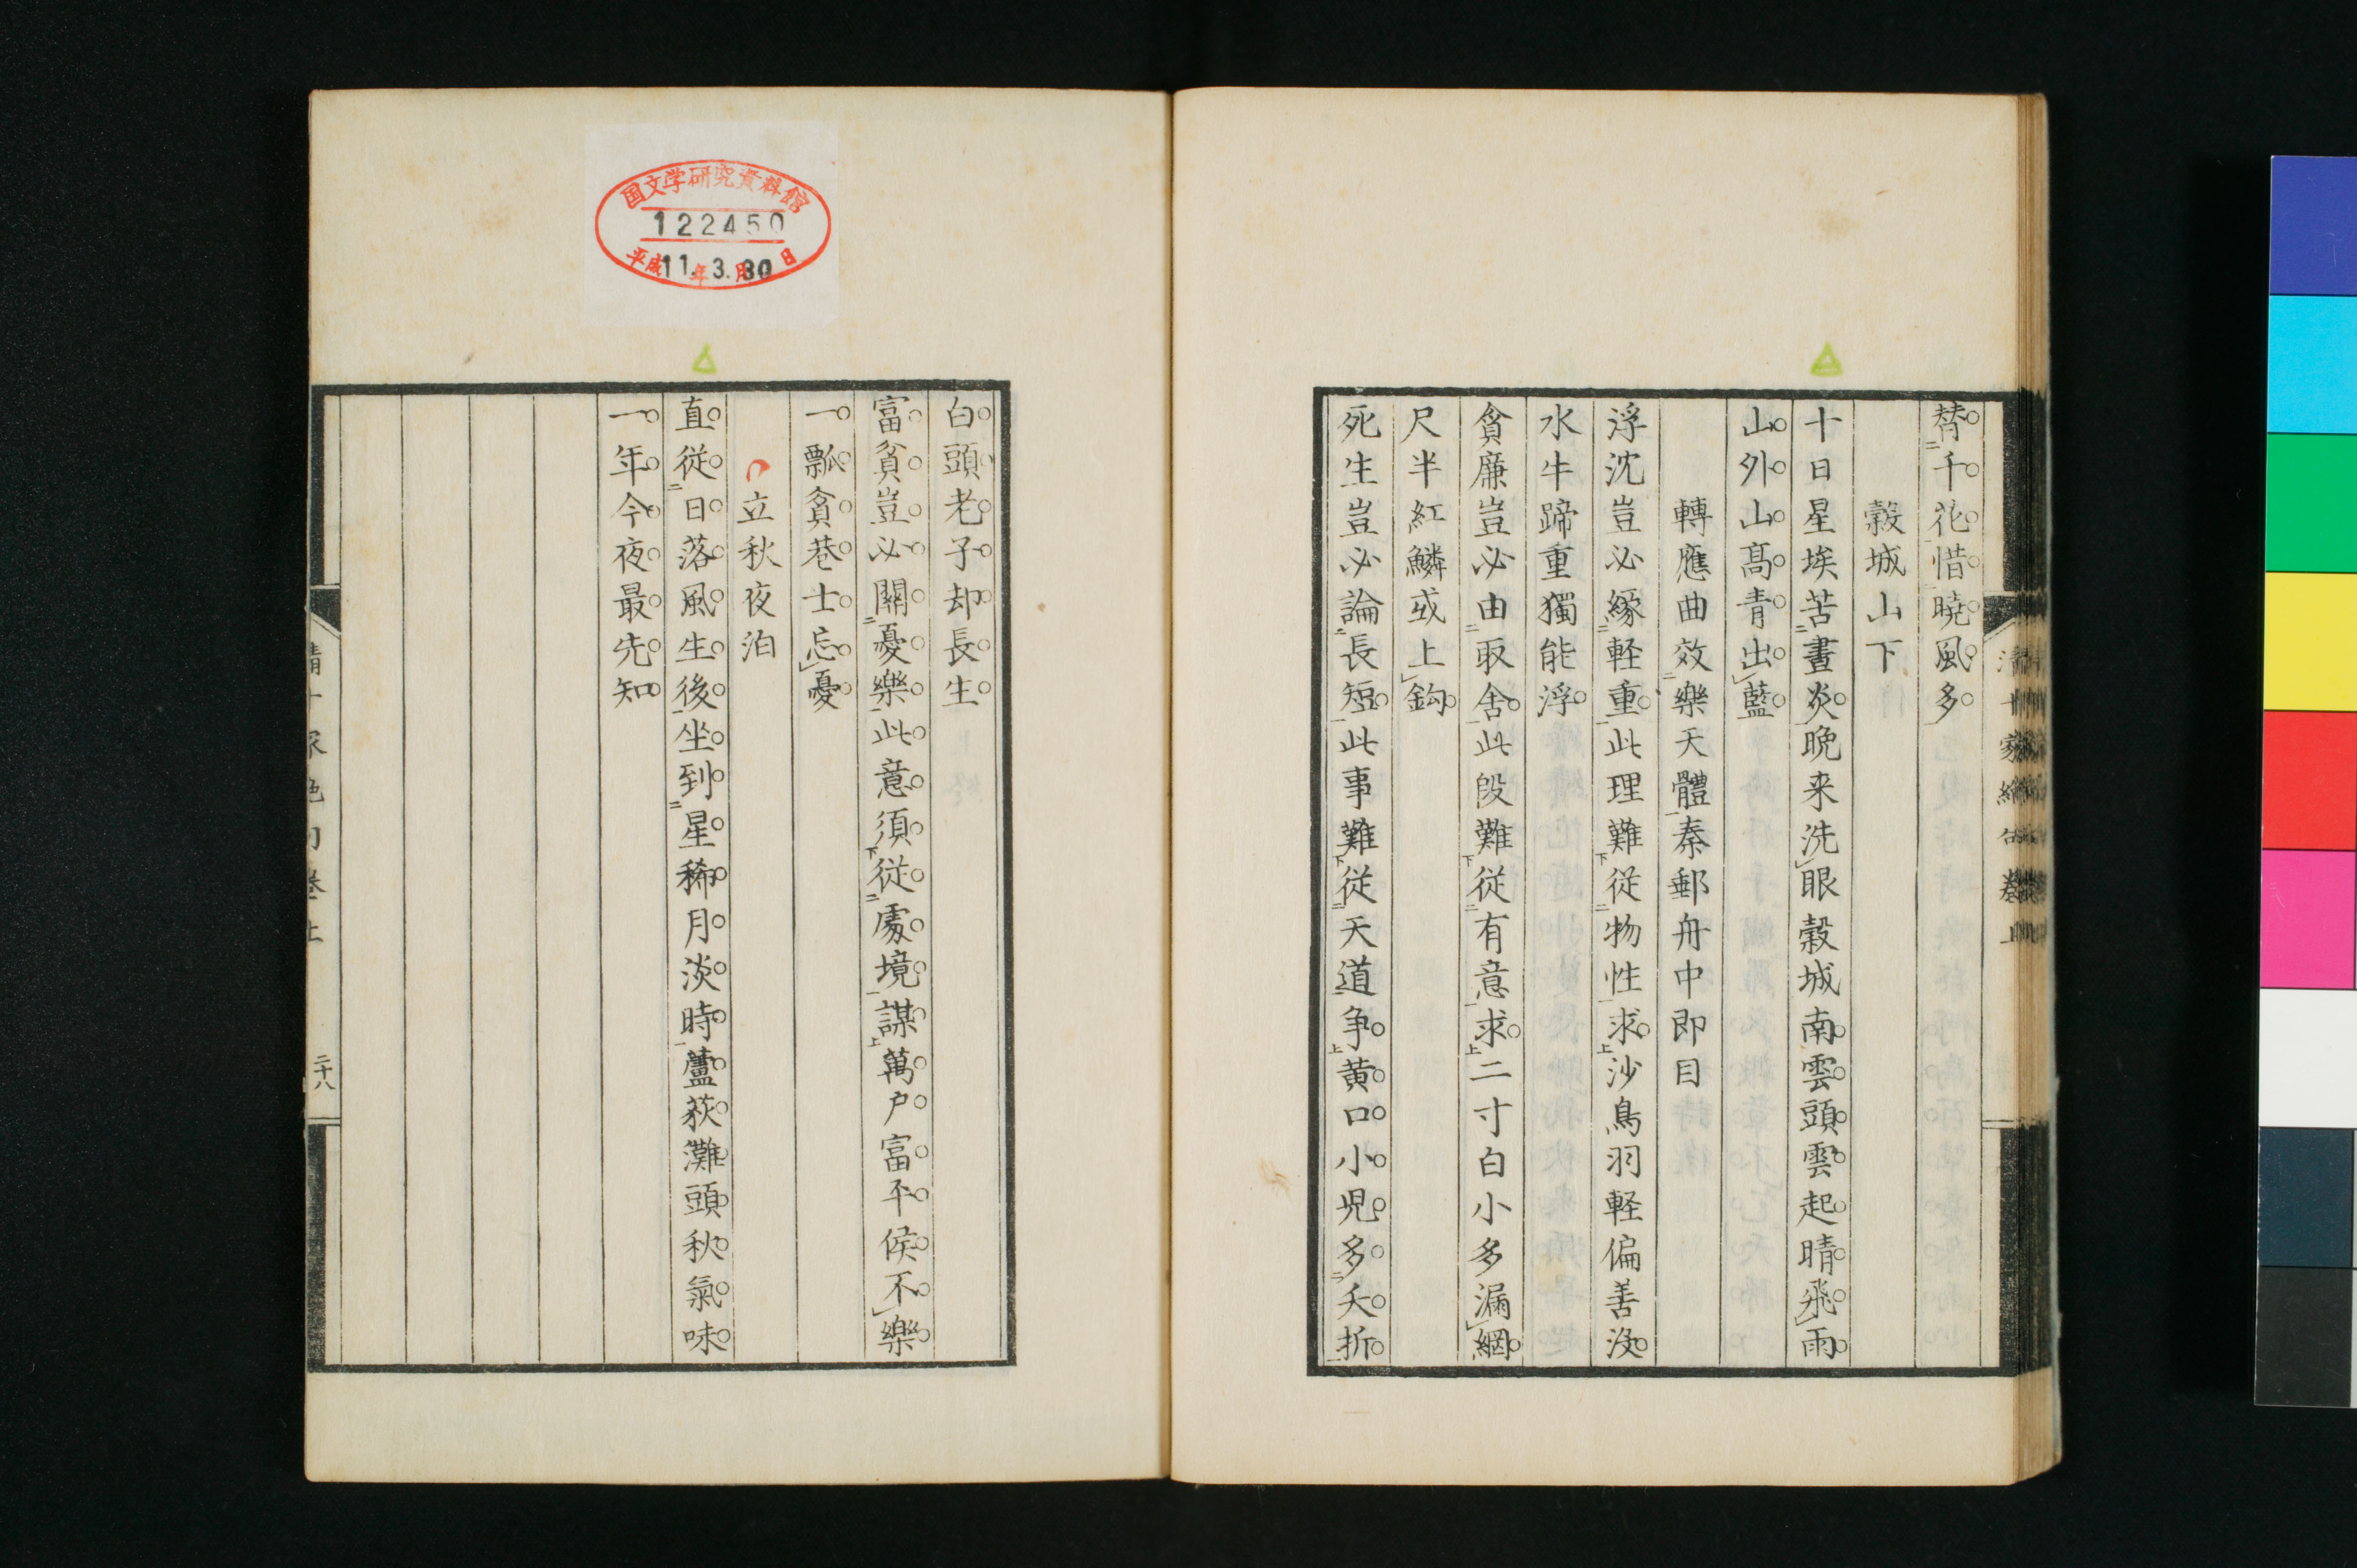 替千花惜曉風多
穀城山下
十日星埃苦晝炎晩来洗眼穀城南雲頭雲起晴飛雨
山外山髙青出藍
轉應曲效樂天體秦郵舟中即目
浮沈豈必緣軽重此理難從物性求沙鳥羽軽偏善没
水牛蹄重獨能浮
貪廉豈必由取舍此段難從有意求二寸白小多漏網
尺半紅鱗或上鈎
死生豈必論長短此事難從天道争黄口小児多夭折
白頭老子却長生
富貧豈必關憂樂此意須從處境謀萬户富平侯不樂
一瓢貧巷士忘憂
立秋夜泊
直從日落風生後坐到星稀月淡時蘆荻灘頭秋氣味
一年今夜最先知
清十家絶句巻上
二十八
国文学研究資料館
122450
平成11年3月30日